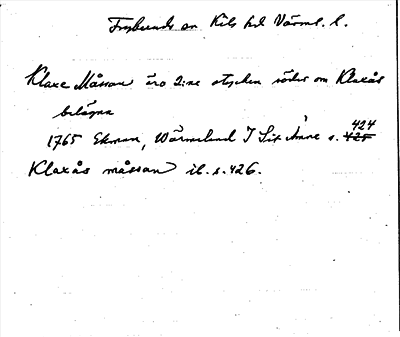 Frykerud sn Kils hd Värml. l.
Klaxe Måssan äro 2:ne stycken söder om Klaxås
belägna
1765 Ekman, Wärmeland I Sit Ämne s. 424 ~~425~~
Klaxås måssan ib. s. 426.